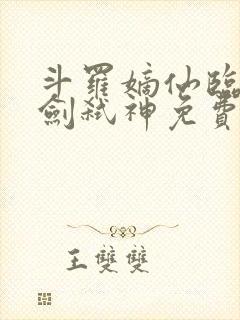 斗羅嫡仙臨
劍弒神免費
王雙雙